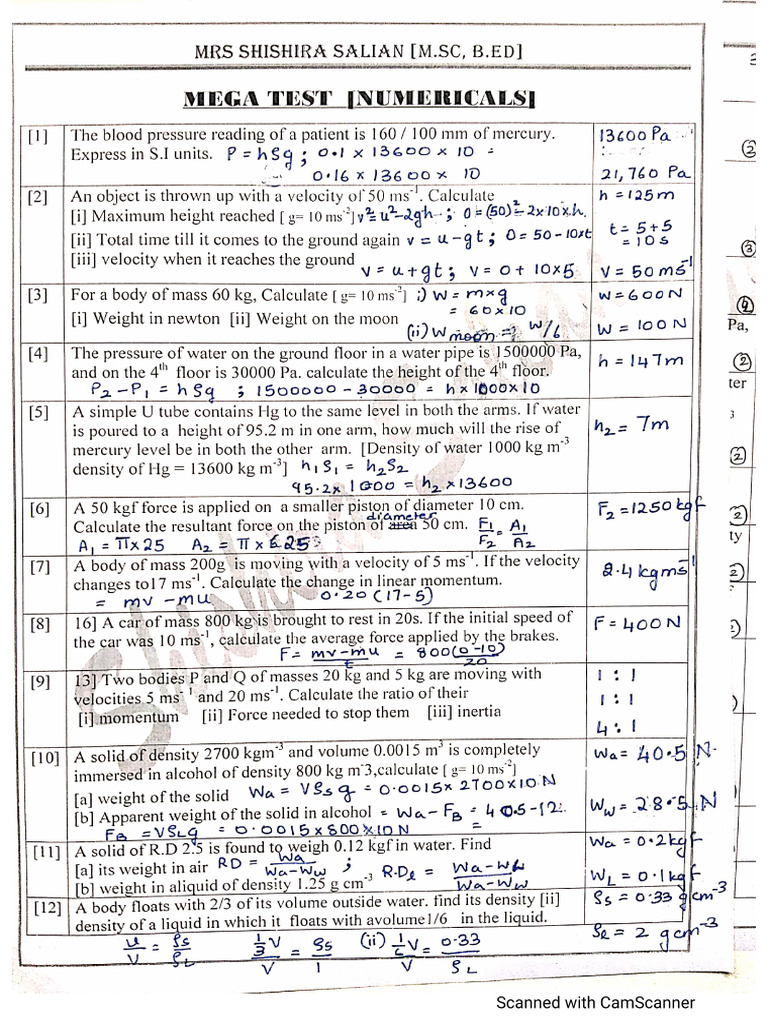 MRS SHISHIRA SALIAN [M.SC, B.ED]
MEGA TEST [NUMERICALS]
[1] The blood pressure reading of a patient is 160 / 100 mm of mercury. 13600 Pa
Express in S.I units. P = hSg ; 0.1 × 13600 × 10 =
0.16 × 13600 × 10 21,760 Pa
[2] An object is thrown up with a velocity of 50 ms⁻¹. Calculate h = 125m
[i] Maximum height reached [ g= 10 ms⁻²] v² = u² - 2gh ; 0 = (50)² - 2×10×h.
[ii] Total time till it comes to the ground again v = u - gt ; 0 = 50 - 10×t t = 5+5
= 10s
[iii] velocity when it reaches the ground
v = u + gt ; v = 0 + 10×5 V = 50 ms⁻¹
[3] For a body of mass 60 kg, Calculate [ g= 10 ms⁻²] i) W = m×g W = 600N
= 60×10
[i] Weight in newton [ii] Weight on the moon
(ii) W moon = W/6 W = 100N
[4] The pressure of water on the ground floor in a water pipe is 1500000 Pa,
and on the 4th floor is 30000 Pa. calculate the height of the 4th floor. h = 147m
P₂ - P₁ = hSg ; 1500000 - 30000 = h × 1000×10
[5] A simple U tube contains Hg to the same level in both the arms. If water
is poured to a height of 95.2 m in one arm, how much will the rise of h₂ = 7m
mercury level be in both the other arm. [Density of water 1000 kg m⁻³
density of Hg = 13600 kg m⁻³] h₁S₁ = h₂S₂
95.2 × 1000 = h₂ × 13600
[6] A 50 kgf force is applied on a smaller piston of diameter 10 cm. F₂ = 1250 kgf
diameter
Calculate the resultant force on the piston of area 50 cm. F₁/F₂ = A₁/A₂
A₁ = π×25 A₂ = π×625
[7] A body of mass 200g is moving with a velocity of 5 ms⁻¹. If the velocity
changes to17 ms⁻¹. Calculate the change in linear momentum. 2.4 kgms⁻¹
= mv - mu 0.20 (17-5)
[8] 16] A car of mass 800 kg is brought to rest in 20s. If the initial speed of
the car was 10 ms⁻¹, calculate the average force applied by the brakes. F = 400N
F = mv-mu/t = 800(0-10)/20
[9] 13] Two bodies P and Q of masses 20 kg and 5 kg are moving with 1 : 1
velocities 5 ms⁻¹ and 20 ms⁻¹. Calculate the ratio of their 1 : 1
[i] momentum [ii] Force needed to stop them [iii] inertia 4 : 1
[10] A solid of density 2700 kgm⁻³ and volume 0.0015 m³ is completely Wa = 40.5 N
immersed in alcohol of density 800 kg m-3,calculate [ g= 10 ms⁻²]
[a] weight of the solid Wa = VSₛg = 0.0015 × 2700×10N
[b] Apparent weight of the solid in alcohol = Wa - F_B = 40.5-12. Ww = 28.5 N
F_B = VS_Lg = 0.0015×800×10N =
[11] A solid of R.D 2.5 is found to weigh 0.12 kgf in water. Find Wa = 0.2kgf
[a] its weight in air RD = Wa/Wa-Ww ; R.Dₗ = Wa-WL/Wa-Ww
[b] weight in aliquid of density 1.25 g cm⁻³ W_L = 0.1kgf
[12] A body floats with 2/3 of its volume outside water. find its density [ii] Sₛ = 0.33 gcm⁻³
density of a liquid in which it floats with avolume1/6 in the liquid. Sₗ = 2 gcm⁻³
u/V = Sₛ/S_L 1/3V/V = Sₛ/1 (ii) 1/6V/V = 0.33/S_L
Pa,
ter
3
ty
Scanned with CamScanner